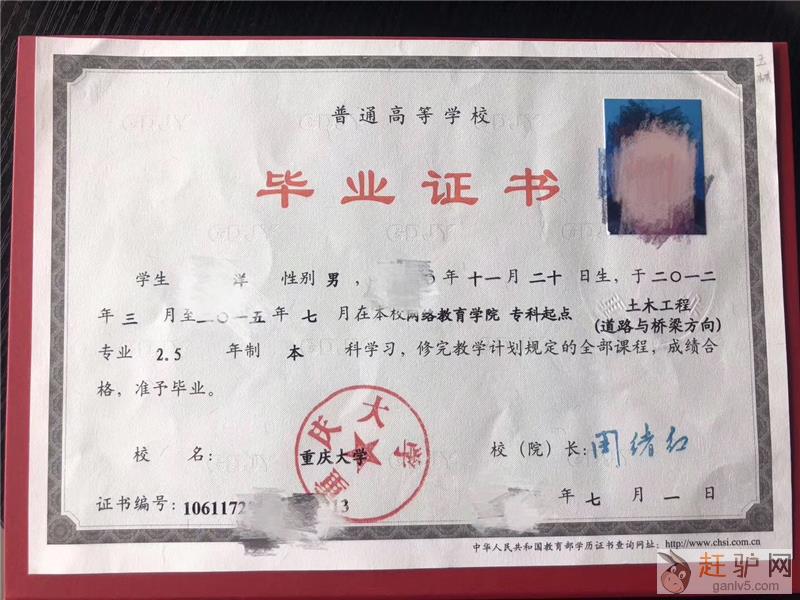 普通高等学校
毕业证书
学生 洋 性别 男， 年 十一月 二十 日生，于二〇一二
年 三 月至二〇一五年 七 月在本校网络教育学院 专科起点 土木工程
(道路与桥梁方向)
专业 2.5 年制 本 科学习，修完教学计划规定的全部课程，成绩合
格，准予毕业。
校 名： 重庆大学
校（院）长：周绪红
重庆大学
证书编号：1061172 13
年 七 月 一 日
中华人民共和国教育部学历证书查询网址：http://www.chsi.com.cn
赶驴网
ganlv5.com